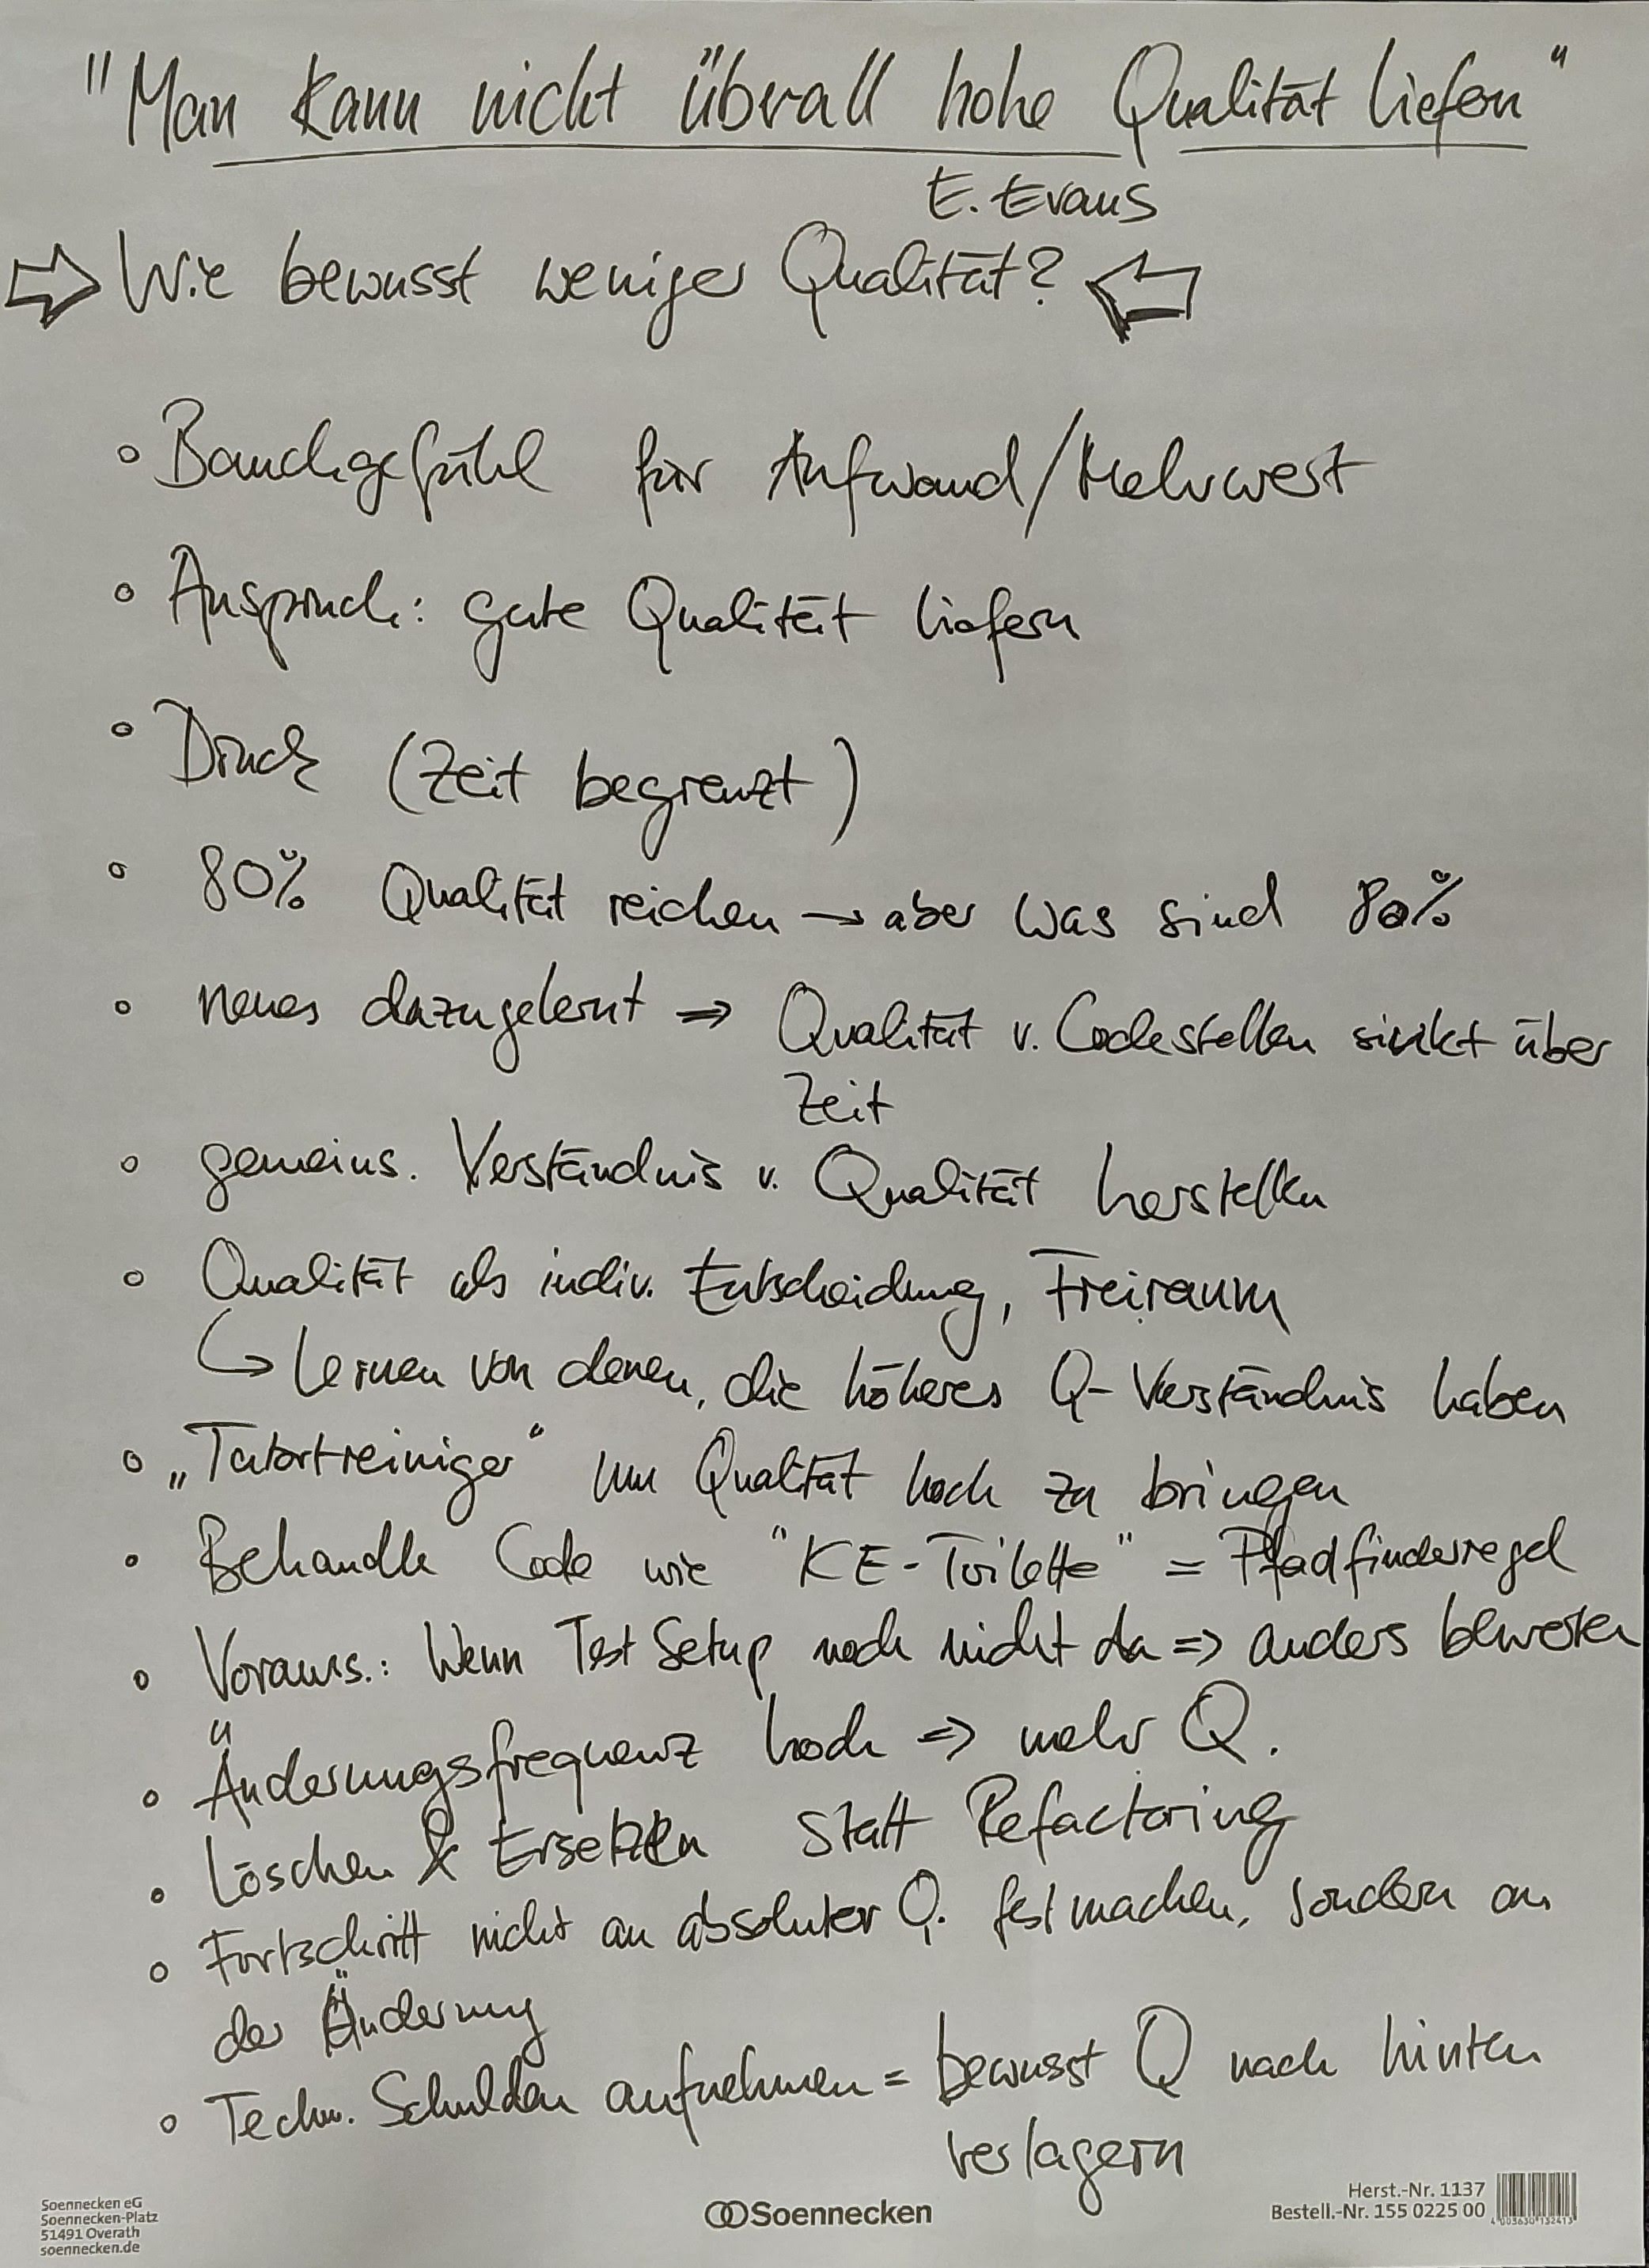 "Man kann nicht überall hohe Qualität liefern"
E. Evans
⇨ Wie bewusst weniger Qualität? ⇦
° Bauchgefühl für Aufwand/Mehrwert
° Anspruch: gute Qualität liefern
° Druck (Zeit begrenzt)
° 80% Qualität reichen → aber was sind 80%
° neues dazugelernt ⇒ Qualität v. Codestellen sinkt über
Zeit
° gemeins. Verständnis v. Qualität herstellen
° Qualität als indiv. Entscheidung, Freiraum
↳ Lernen von denen, die höheres Q-Verständnis haben
° „Tatortreiniger" um Qualität hoch zu bringen
° Behandle Code wie "KE-Toilette" = Pfadfinderregel
° Voraus.: Wenn Test Setup noch nicht da ⇒ anders bewerten
° Änderungsfrequenz hoch ⇒ mehr Q.
° Löschen & Ersetzen statt Refactoring
° Fortschritt nicht an absoluter Q. festmachen, sondern an
der Änderung
° Techn. Schulden aufnehmen = bewusst Q nach hinten
verlagern
Soennecken eG
Soennecken-Platz
51491 Overath
soennecken.de
Soennecken
Herst.-Nr. 1137
Bestell.-Nr. 155 0225 00
4 003630 132413